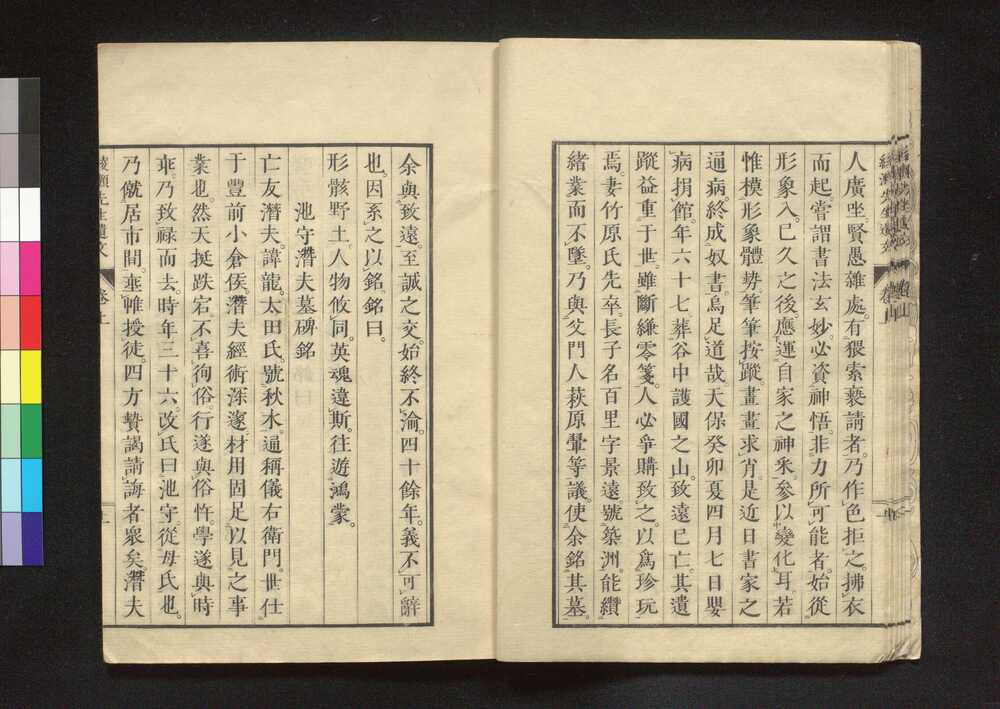 人廣坐。賢愚雜處。有猥索褻請者。乃作色拒之。拂衣
而起。嘗謂書法玄妙。必資神悟。非力所可能者。始從
形象入。已久之後。應運自家之神采。參以變化耳。若
惟模形象體勢。筆筆按蹤。畫畫求肖。是近日書家之
通病。終成奴書。烏足道哉。天保癸卯夏四月七日嬰
病捐館。年六十七。葬谷中護國之山。致遠已亡。其遺
蹤益重于世。雖斷縑零箋。人必爭購致之。以爲珍玩
焉。妻竹原氏先卒。長子名百里字景遠。號築洲。能纘
緒業而不墜。乃與父門人萩原鞏等議。使余銘其墓。
余與致遠。至誠之交。始終不渝。四十餘年。義不可辭
也。因系之以銘。銘曰。
形骸野土。人物攸同。英魂違斯。往遊鴻蒙。
池守濳夫墓碑銘
亡友濳夫。諱龍。太田氏。號秋水。通稱儀右衛門。世仕
于豐前小倉侯。濳夫經術深邃。材用固足以見之事
業也。然天挺跌宕。不喜徇俗。行遂與俗忤。學遂與時
乖。乃致祿而去。時年三十六。改氏曰池守。從母氏也。
乃僦居市間。垂帷授徒。四方贄謁請誨者衆矣。濳夫
先生遺文